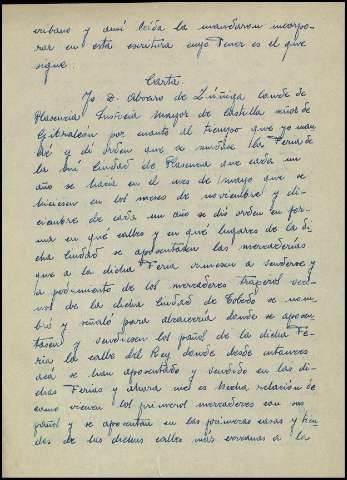 cribano y ansí leída la mandaron incorpo-
rar en esta escritura cuyo tenor es el que
sigue:
Carta.
Yo D. Alvaro de Zúñiga Conde de
Plasencia Justicia Mayor de Castilla señor de
Gibraleón por cuanto al tiempo que yo man-
dé y di orden que se mudase la Feria de
la mi Ciudad de Plasencia que cada un
año se hacía en el mes de mayo que se
hiciesen en los meses de noviembre y di-
ciembre de cada un año se dió orden en for-
ma en qué calles y en qué lugares de la di-
cha Ciudad se aposentasen las mercaderías
que a la dicha Feria viniesen a venderse y
a pedimento de los mercaderes traperos veci-
nos de la dicha Ciudad de Toledo se nom-
bró y señaló para alcaicería donde se aposen-
tasen y vendiesen los paños de la dicha Fe-
ria la calle del Rey donde desde entonces
acá se han aposentado y vendido en las di-
chas Ferias y ahora me es hecha relación de
como vienen los primeros mercaderes con sus
paños y se aposentan en las primeras casas y tien-
das de las dichas calles más cercanas a la